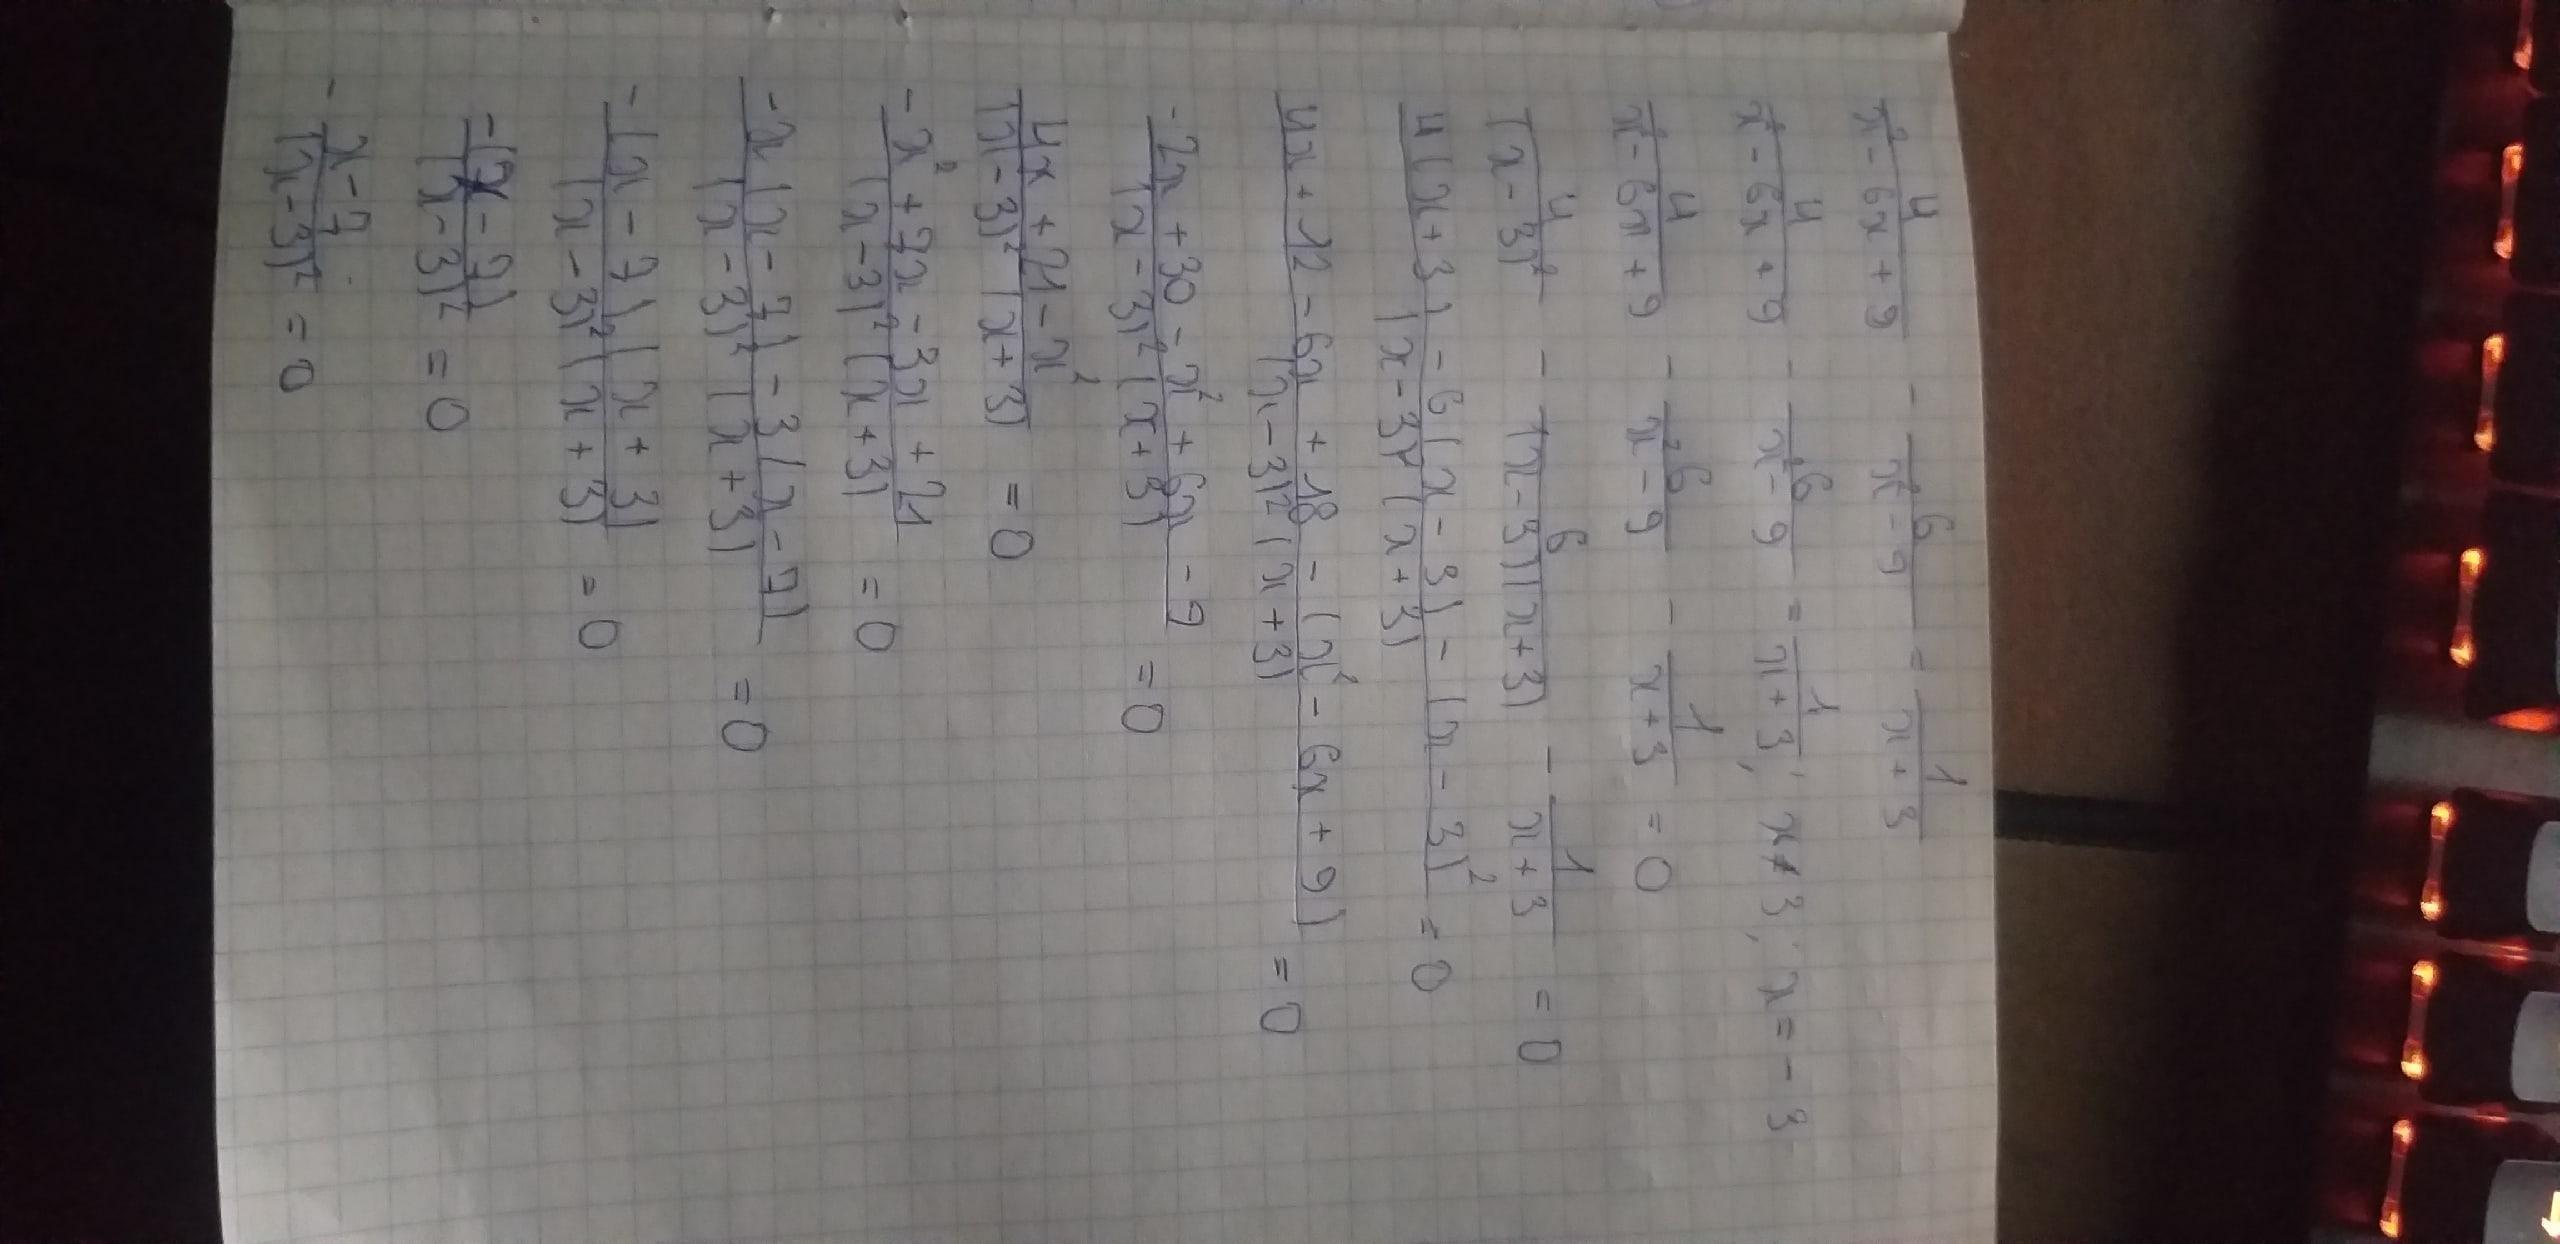 4/(x² - 6x + 9) - 6/(x² - 9) = 1/(x + 3)
4/(x² - 6x + 9) - 6/(x² - 9) = 1/(x + 3); x ≠ 3; x = -3
4/(x² - 6x + 9) - 6/(x² - 9) - 1/(x + 3) = 0
4/(x - 3)² - 6/((x - 3)(x + 3)) - 1/(x + 3) = 0
(4(x + 3) - 6(x - 3) - (x - 3)²)/((x - 3)²(x + 3)) = 0
(4x + 12 - 6x + 18 - (x² - 6x + 9))/((x - 3)²(x + 3)) = 0
(-2x + 30 - x² + 6x - 9)/((x - 3)²(x + 3)) = 0
(4x + 21 - x²)/((x - 3)²(x + 3)) = 0
(-x² + 7x - 3x + 21)/((x - 3)²(x + 3)) = 0
(-x(x - 7) - 3(x - 7))/((x - 3)²(x + 3)) = 0
(-(x - 7)(x + 3))/((x - 3)²(x + 3)) = 0
(-(x - 7))/(x - 3)² = 0
- (x - 7)/(x - 3)² = 0